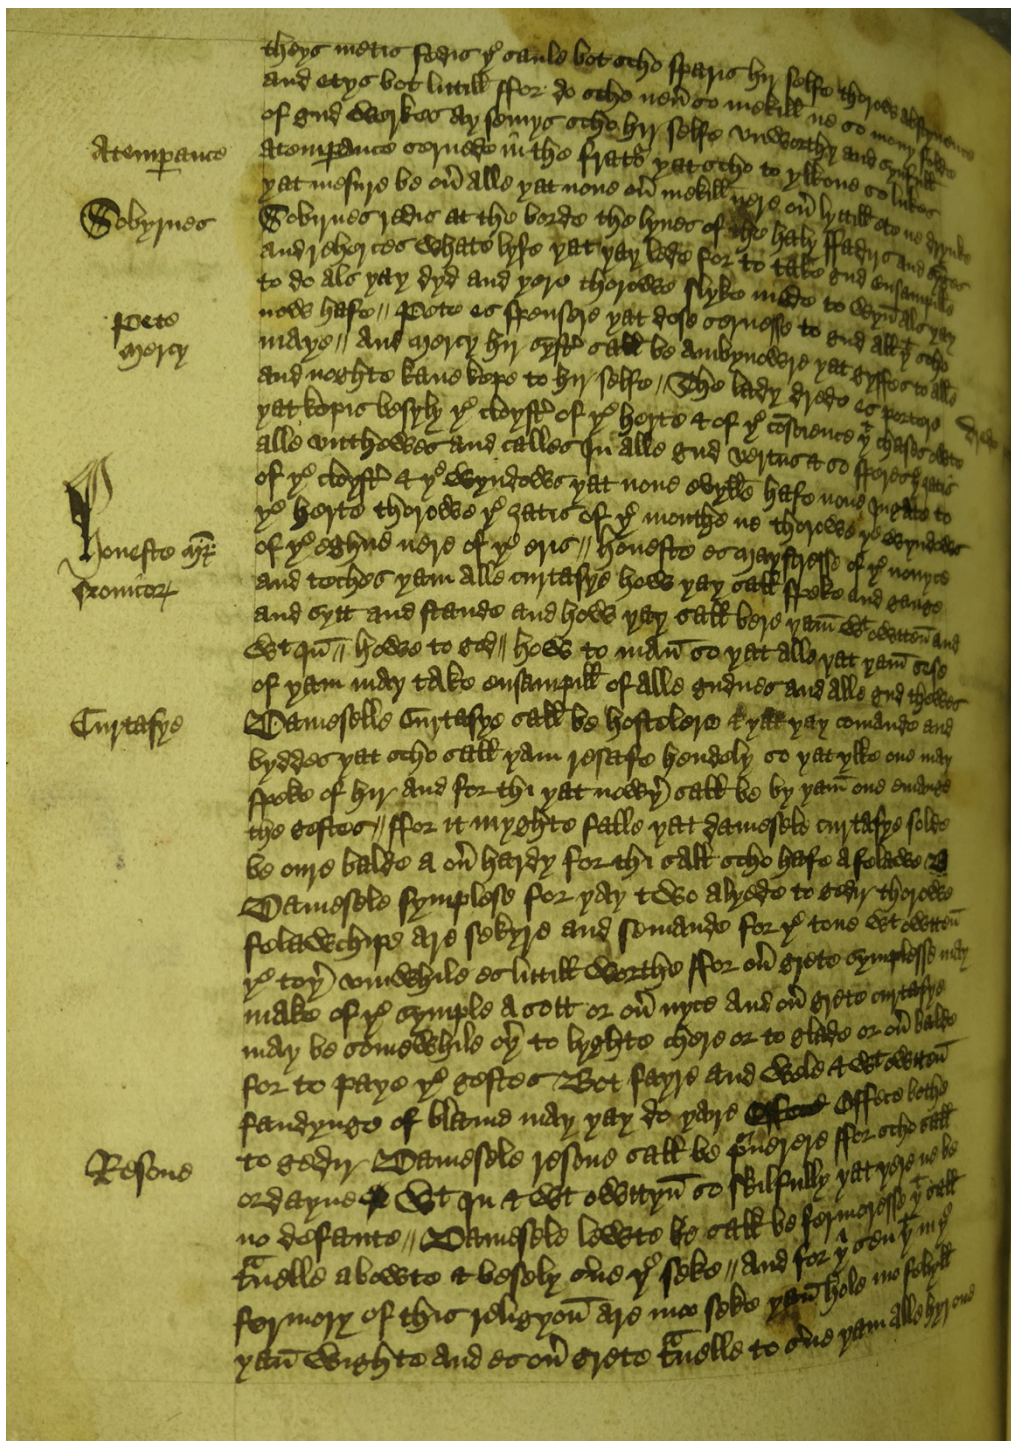 theys metis fedis yͤ saule bot scho sparis hir selfe thorow abstynence
and etys bot littill ffor do scho neu̅ so mekill ne so mony
of gud werkes ay semys scho hir selfe vnworthy and synfull
Atemperance
Atemperance seruede in the fratͬ yat scho to ylkone so lukes
yat mesure be ou̅ alle yat none ou̅ mekill nere ou̅ lyttill ete ne drynke
Sobyrnes
Sobirnes redis at the borde the lyues of the haly ffadirs and
and reherces whate lyfe yat yay lede for to take gud ensampille
to do als yay dyd and yere thorowe slyke mede to wyn̅ als yay
now hafe // Pete es spensere yat dose seruesse to gud all yͭ scho
Pete
Mercy
maye // And mercy hir systͬ sall be ambynowre yat gyffes to alle
and noghte kane kepe to hir selfe // The lady drede es portere
drede
yat kepis besyly yͤ cloystͬ of yͤ herte & of yͤ co̅science yͭ chases owte
alle vnthewes and calles In alle gud vertus & so speres yͤ ȝatis
of yͤ cloystͬ & yͤ wyndows yat none evylle hafe none Ingate to
yͤ herte thorowe yͤ ȝatis of yͤ mouthe ne thorowe yͤ wyndows
Honeste
of yͤ eghne nere of yͤ eris // honeste es maystresse of yͤ nouyce
and teches yam alle curtasye how yay sall speke and gange
and sytt and stande and how yay sall bere yam̅ wͭowtten̅ and
wͭ In̅ // howe to god // how to man̅ so yat alle yat yam̅ sese
of yam may take ensampill of alle gudnes and alle gud thewes
Curtasye
Dameselle Curtasye sall be hostelere & yat yay comande and
byddes yat scho sall yam resafe hendely so yat ylke one may
speke of hir and for thi yat nowyͬ sall be by yam̅ one emange
the gestes // ffor it myghte falle yat damesele curtasye solde
be oure balde a ou̅ hardy for thi sall scho hafe a felawe
Damesele symplese for yay two alyede to gedir thorowe
felawchipe are sekyre and semande for yͤ tone wͭowtten̅
yͤ toyͬ vmwhile es littill worthe ffor ou̅ grete symplesse may
make of yͤ symple a sott or ou̅ nyce And ou̅ grete curtasye
may be somewhile oyͬ to lyghte chere or to glade or ou̅ balde
for to paye yͤ gestes Bot fayre and wele & wͭowtten̅
fandynge of blame may yay do yare Offece bothe
Resone
to gedir Damesele resone sall be p̱uerere ffor scho sall
ordayne wͭ In & wͭ owttyn̅ so skilfully yat yere ne be
no defaute // Damesele lewte sall be fermoresse yͭ sall
tͣuelle abowte & besely sͤue yͤ seke // And for yͭ
fermory of this religyon̅ are moo seke yan̅ hole mo febyll
yan̅ wighte and es ou̅ grete tͣuelle to sͤue yam alle hyr one